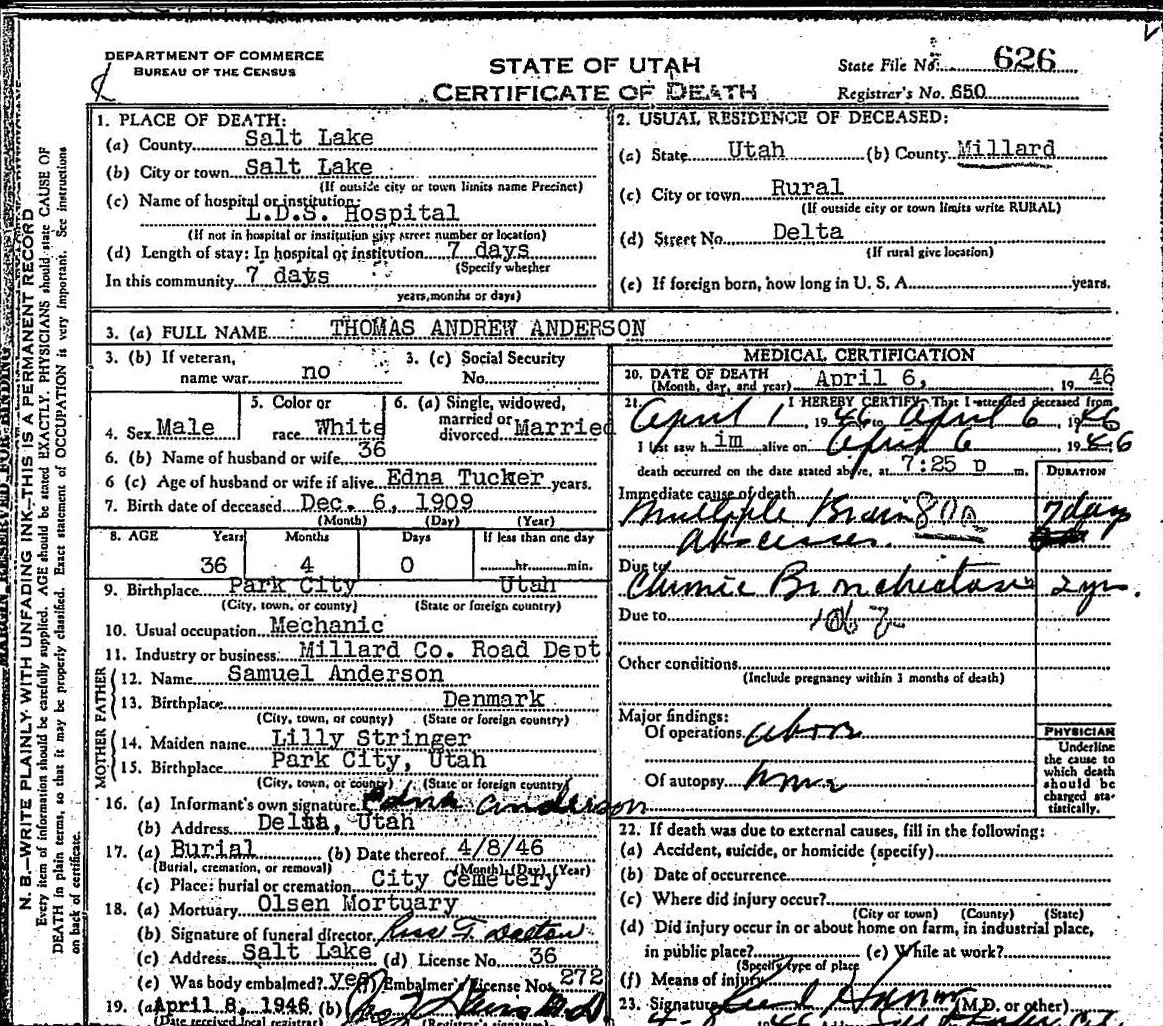 DEPARTMENT OF COMMERCE
BUREAU OF THE CENSUS
STATE OF UTAH
CERTIFICATE OF DEATH
State File No. 626
Registrar's No. 650
MARGIN RESERVED FOR BINDING
N. B.—WRITE PLAINLY WITH UNFADING INK—THIS IS A PERMANENT RECORD
Every item of information should be carefully supplied. AGE should be stated EXACTLY. PHYSICIANS should state CAUSE OF
DEATH in plain terms, so that it may be properly classified. Exact statement of OCCUPATION is very important. See instructions
on back of certificate.
1. PLACE OF DEATH:
(a) County Salt Lake
(b) City or town Salt Lake
(If outside city or town limits name Precinct)
(c) Name of hospital or institution:
L.D.S. Hospital
(If not in hospital or institution give street number or location)
(d) Length of stay: In hospital or institution 7 days
(Specify whether
In this community 7 days
years, months or days)
2. USUAL RESIDENCE OF DECEASED:
(a) State Utah (b) County Millard
(c) City or town Rural
(If outside city or town limits write RURAL)
(d) Street No. Delta
(If rural give location)
(e) If foreign born, how long in U. S. A. years.
3. (a) FULL NAME THOMAS ANDREW ANDERSON
3. (b) If veteran,
name war no
3. (c) Social Security
No.
4. Sex Male
5. Color or
race White
6. (a) Single, widowed,
married or
divorced Married
6. (b) Name of husband or wife 36
6 (c) Age of husband or wife if alive Edna Tucker years.
7. Birth date of deceased Dec. 6, 1909
(Month) (Day) (Year)
8. AGE Years Months Days If less than one day
36 4 0 hr. min.
9. Birthplace Park City Utah
(City, town, or county) (State or foreign country)
10. Usual occupation Mechanic
11. Industry or business Millard Co. Road Dept
FATHER
12. Name Samuel Anderson
13. Birthplace Denmark
(City, town, or county) (State or foreign country)
MOTHER
14. Maiden name Lilly Stringer
15. Birthplace Park City, Utah
(City, town, or county) (State or foreign country)
16. (a) Informant's own signature Edna Anderson
(b) Address Delta, Utah
17. (a) Burial (b) Date thereof 4/8/46
(Burial, cremation, or removal) (Month) (Day) (Year)
(c) Place: burial or cremation City Cemetery
18. (a) Mortuary Olsen Mortuary
(b) Signature of funeral director
(c) Address Salt Lake (d) License No. 36
(e) Was body embalmed? yes Embalmer's License No. 272
19. (a) April 8, 1946 (b)
(Date received local registrar) (Registrar's signature)
MEDICAL CERTIFICATION
20. DATE OF DEATH
(Month, day, and year) April 6, 19 46
21. I HEREBY CERTIFY, That I attended deceased from
April 1, 19 46 to April 6, 19 46
I last saw h im alive on April 6 19 46
death occurred on the date stated above, at 7:25 p m.
DURATION
Immediate cause of death
Multiple Brain 7 day
abscesses.
Due to
Chronic Bronchiectasis 2 yr.
Due to
Other conditions
(Include pregnancy within 3 months of death)
Major findings:
Of operations above
Of autopsy none
PHYSICIAN
Underline
the cause to
which death
should be
charged sta-
tistically.
22. If death was due to external causes, fill in the following:
(a) Accident, suicide, or homicide (specify)
(b) Date of occurrence
(c) Where did injury occur?
(City or town) (County) (State)
(d) Did injury occur in or about home on farm, in industrial place,
in public place? (e) While at work?
(Specify type of place
(f) Means of injury
23. Signature (M.D. or other)